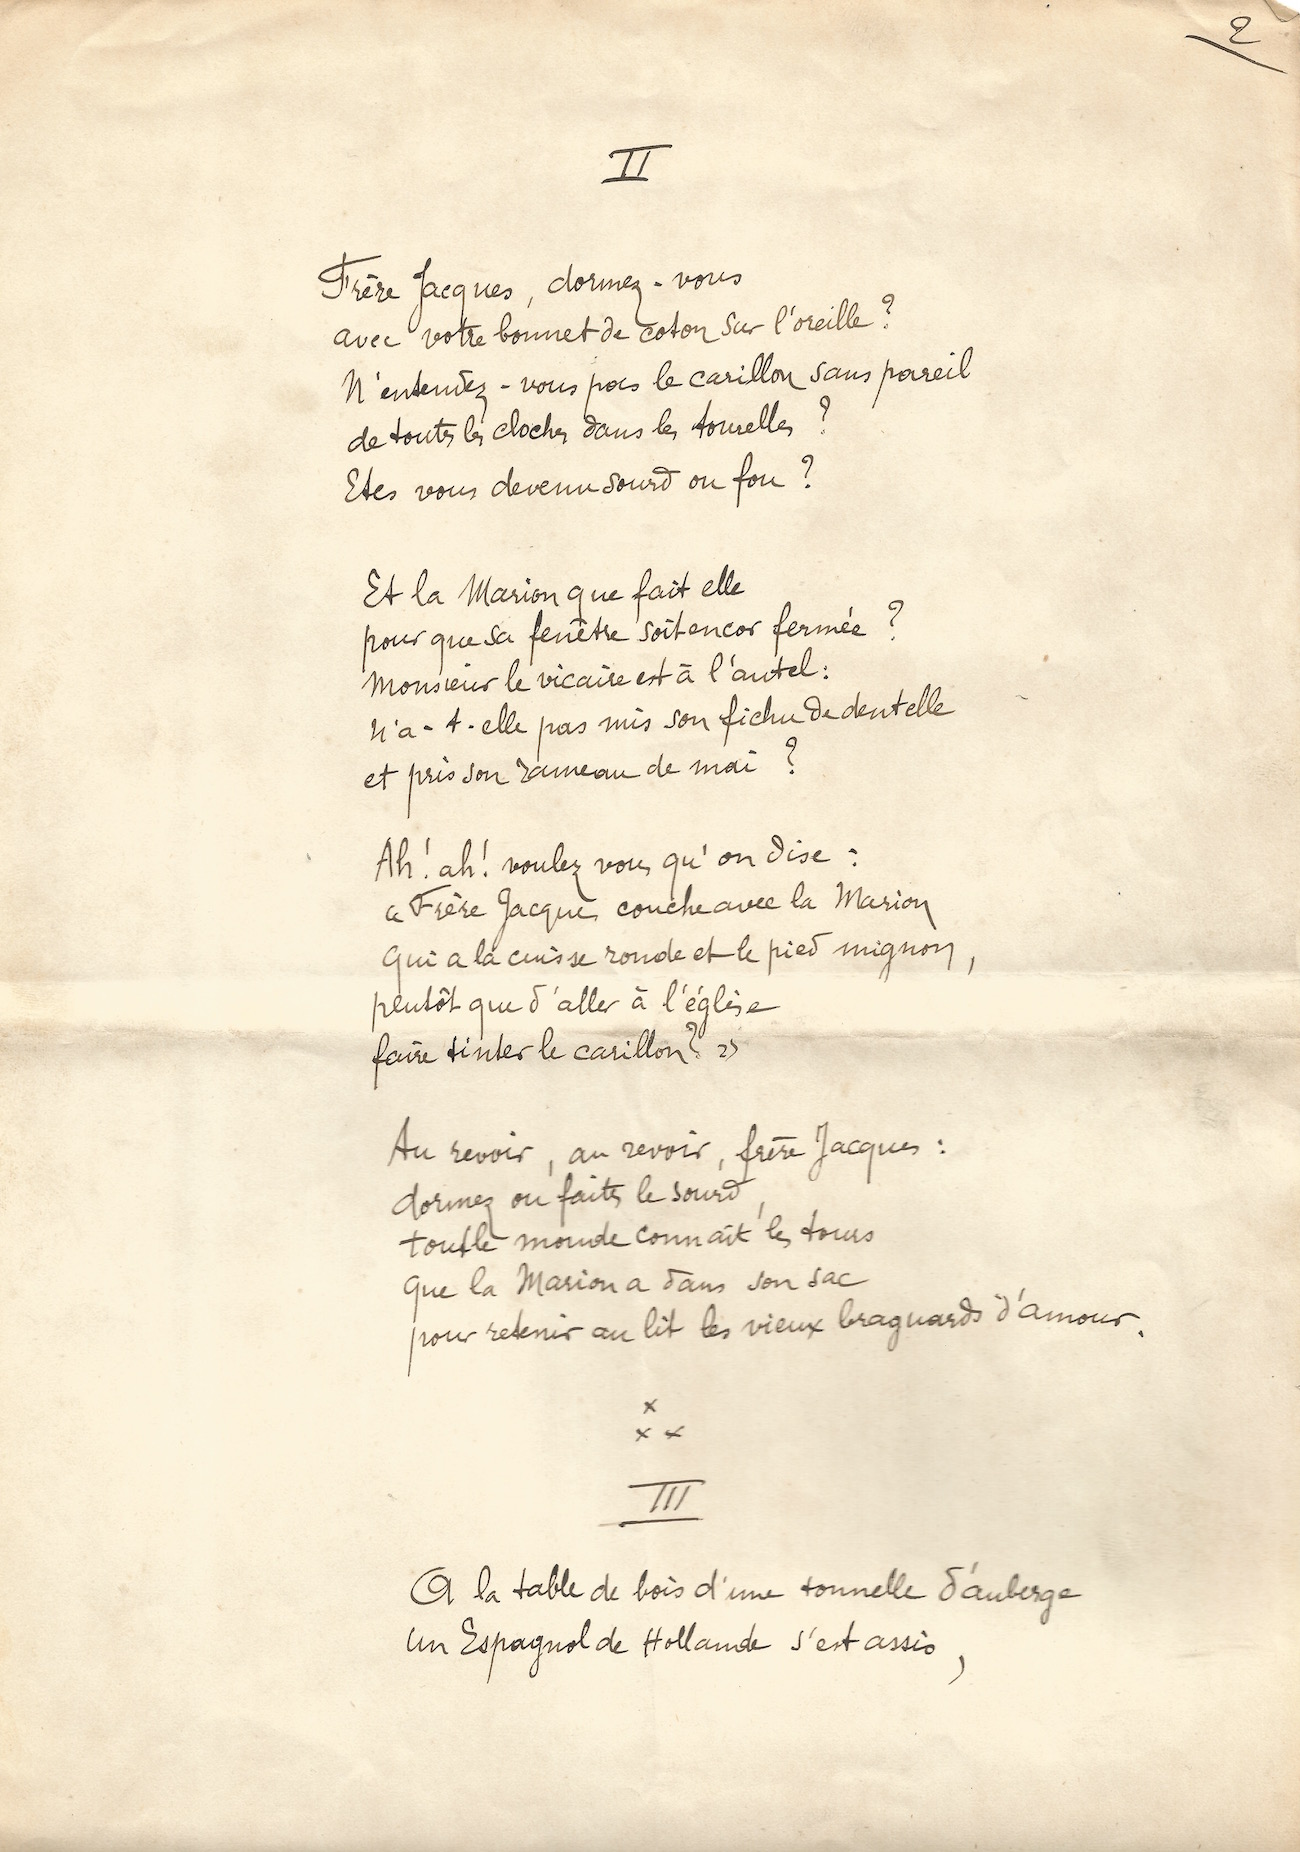 2
II
Frère Jacques, dormez-vous
avec votre bonnet de coton sur l'oreille ?
N'entendez-vous pas le carillon sans pareil
de toutes les cloches dans les tourelles ?
Etes vous devenu sourd ou fou ?
Et la Marion que fait elle
pour que sa fenêtre soit encor fermée ?
Monsieur le vicaire est à l'autel :
N'a-t-elle pas mis son fichu de dentelle
et pris son rameau de mai ?
Ah ! ah ! voulez vous qu'on dise :
« Frère Jacques couche avec la Marion
qui a la cuisse ronde et le pied mignon,
plutôt que d'aller à l'église
faire tinter le carillon ? »
Au revoir, au revoir, frère Jacques :
dormez ou faites le sourd,
tout le monde connaît les tours
que la Marion a dans son sac
pour retenir au lit les vieux braguards d'amour.
x
x x
III
A la table de bois d'une tonnelle d'auberge
un Espagnol de Hollande s'est assis,